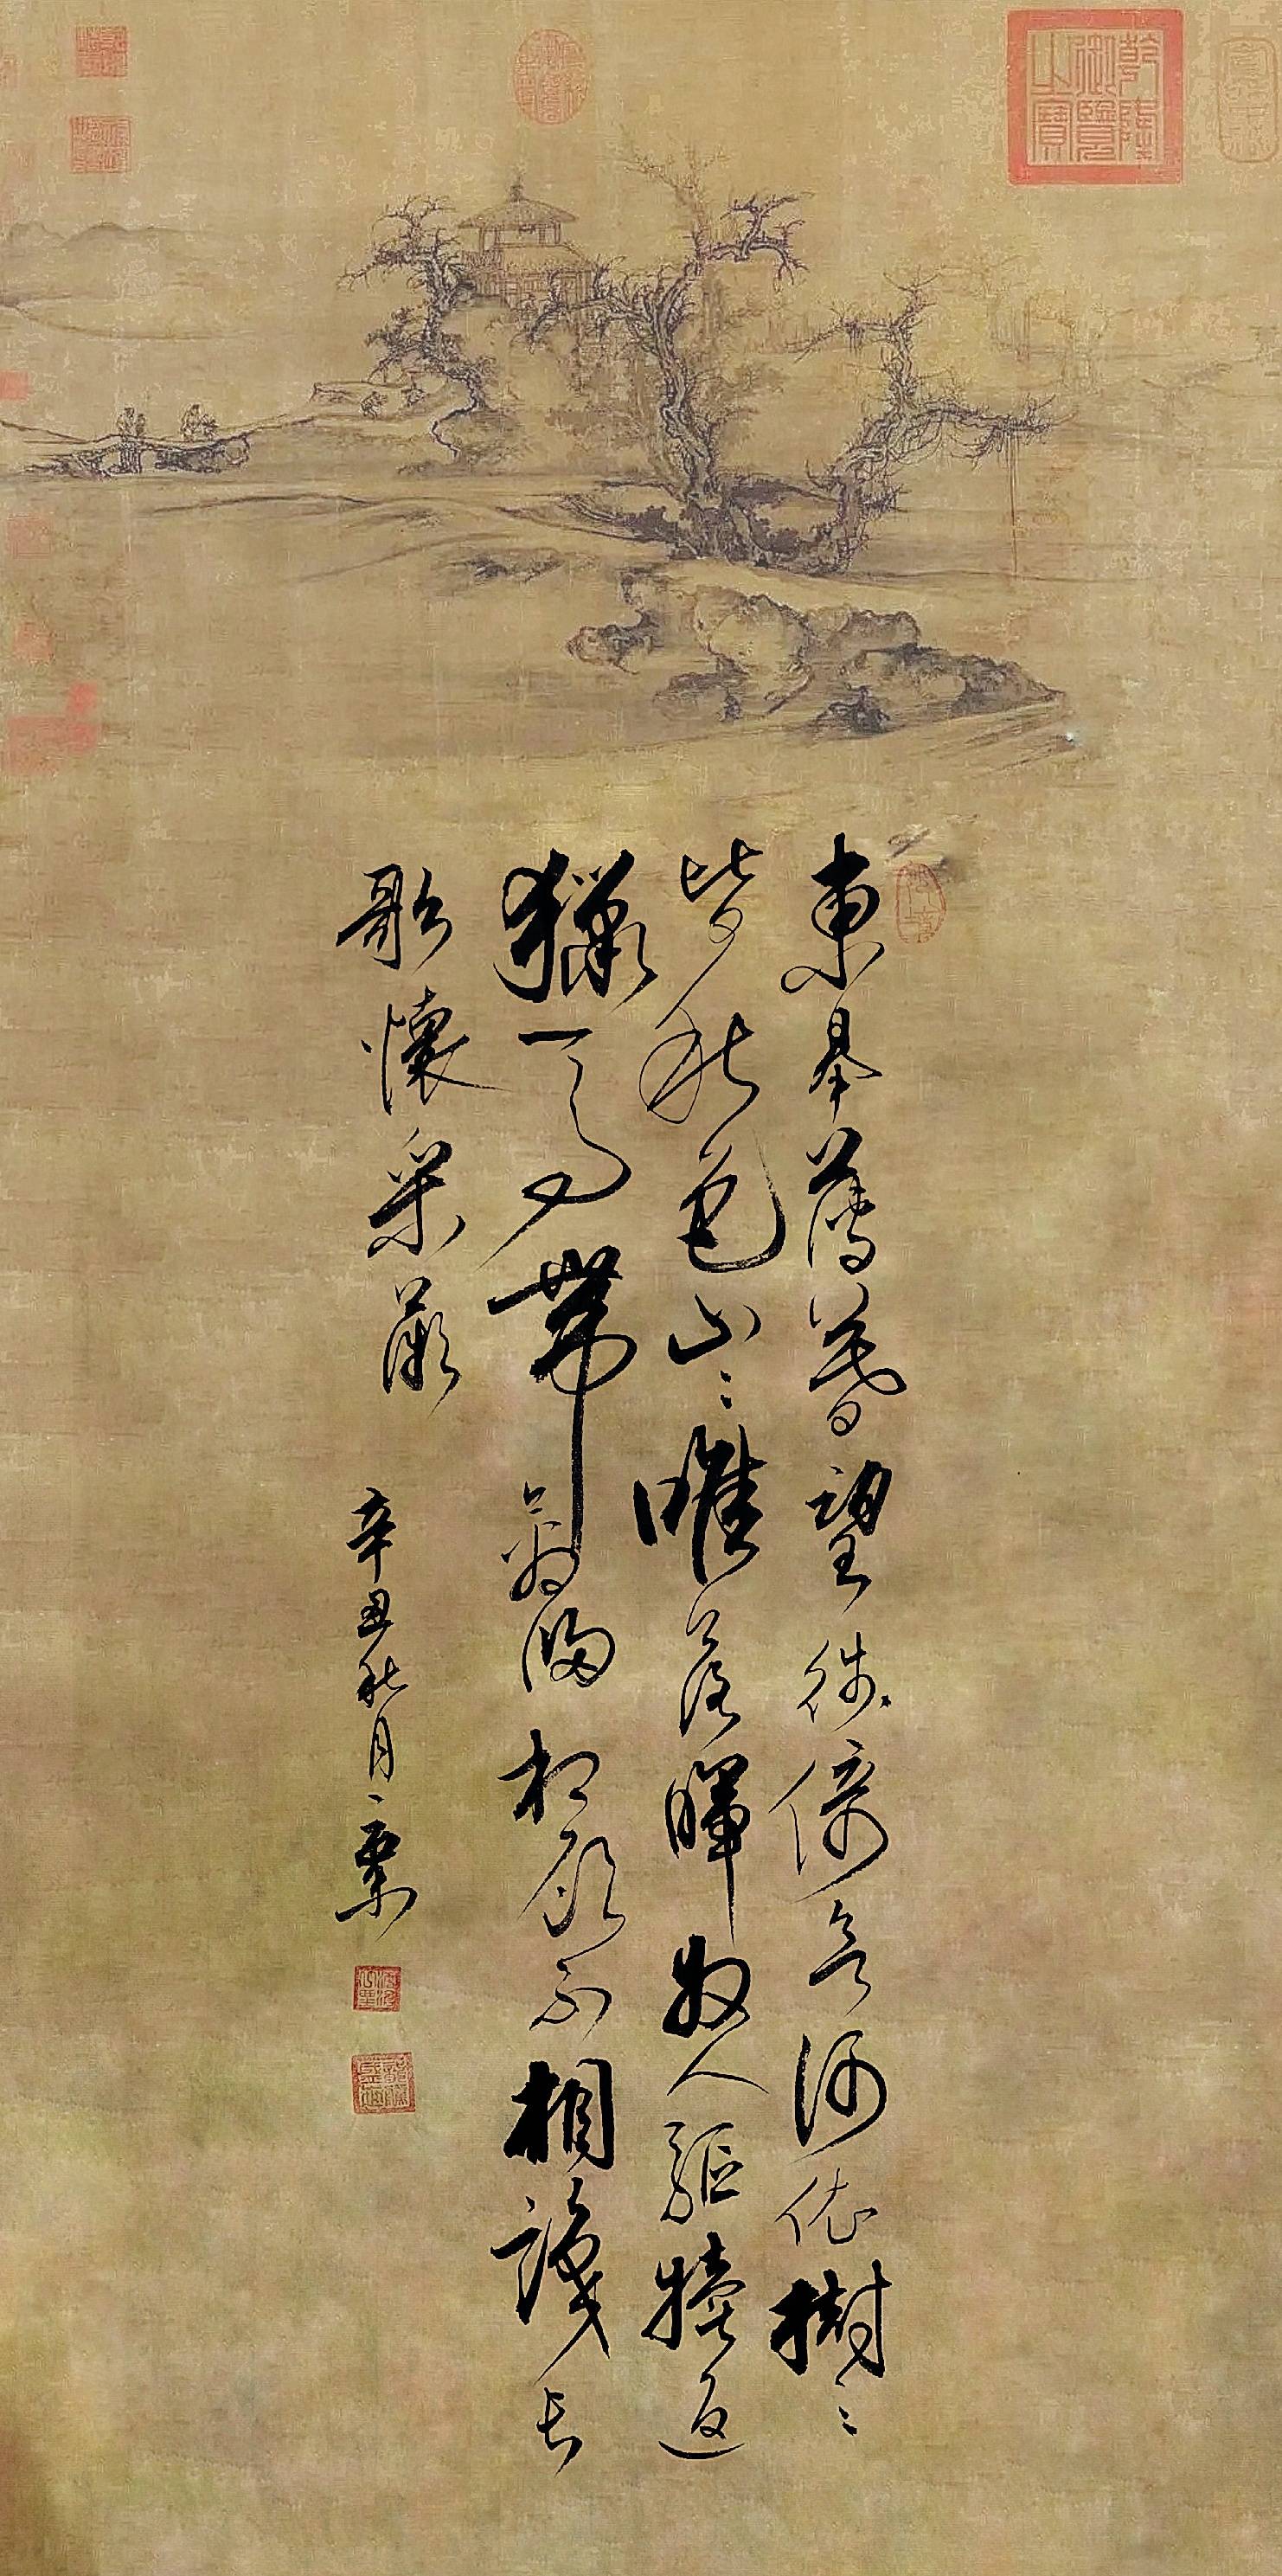 乾隆御覽之寶
東皋薄暮望徙倚欲何依樹〻
皆秋色山〻唯落暉牧人驅犢返
獵馬帶禽歸相顧不相識長
歌懷采薇
辛丑秋月